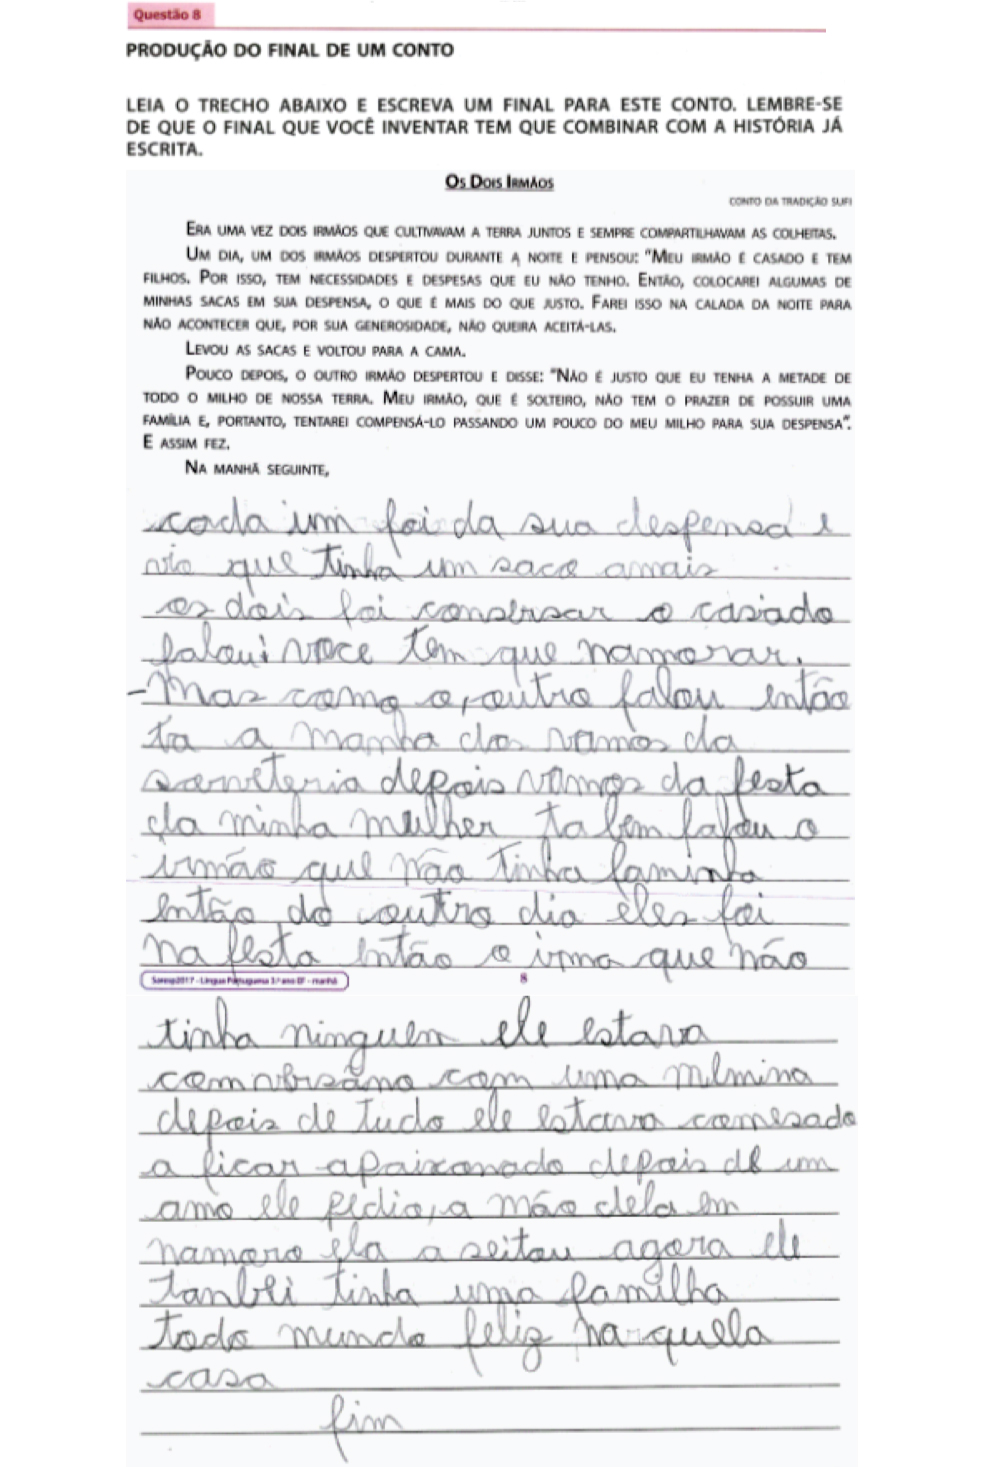 Questão 8
PRODUÇÃO DO FINAL DE UM CONTO
LEIA O TRECHO ABAIXO E ESCREVA UM FINAL PARA ESTE CONTO. LEMBRE-SE
DE QUE O FINAL QUE VOCÊ INVENTAR TEM QUE COMBINAR COM A HISTÓRIA JÁ
ESCRITA.
OS DOIS IRMÃOS
CONTO DA TRADIÇÃO SUFI
ERA UMA VEZ DOIS IRMÃOS QUE CULTIVAVAM A TERRA JUNTOS E SEMPRE COMPARTILHAVAM AS COLHEITAS.
UM DIA, UM DOS IRMÃOS DESPERTOU DURANTE A NOITE E PENSOU: "MEU IRMÃO É CASADO E TEM
FILHOS. POR ISSO, TEM NECESSIDADES E DESPESAS QUE EU NÃO TENHO. ENTÃO, COLOCAREI ALGUMAS DE
MINHAS SACAS EM SUA DESPENSA, O QUE É MAIS DO QUE JUSTO. FAREI ISSO NA CALADA DA NOITE PARA
NÃO ACONTECER QUE, POR SUA GENEROSIDADE, NÃO QUEIRA ACEITÁ-LAS.
LEVOU AS SACAS E VOLTOU PARA A CAMA.
POUCO DEPOIS, O OUTRO IRMÃO DESPERTOU E DISSE: "NÃO É JUSTO QUE EU TENHA A METADE DE
TODO O MILHO DE NOSSA TERRA. MEU IRMÃO, QUE É SOLTEIRO, NÃO TEM O PRAZER DE POSSUIR UMA
FAMÍLIA E, PORTANTO, TENTAREI COMPENSÁ-LO PASSANDO UM POUCO DO MEU MILHO PARA SUA DESPENSA".
E ASSIM FEZ.
NA MANHÃ SEGUINTE,
cada um foi da sua despensa e
vio que tinha um saco amais
os dois foi conversar o casado
falou voce tem que namorar.
-Mas como o, outro falou então
ta a manha dos vamos da
sorveteria depois vamos da festa
da minha mulher ta bem falou o
irmão que não tinha faminha
então do outro dia eles foi
na festa então o irma que não
Saresp2017 - Língua Portuguesa 3.º ano EF - manhã
8
tinha ninguem ele estava
comversano com uma memina
depois de tudo ele estava comesado
a ficar apaixonado depois de um
amo ele pedio, a mão dela em
namoro ela a seitou agora ele
tanbei tinha uma familha
todo mundo feliz naquella
casa
fim